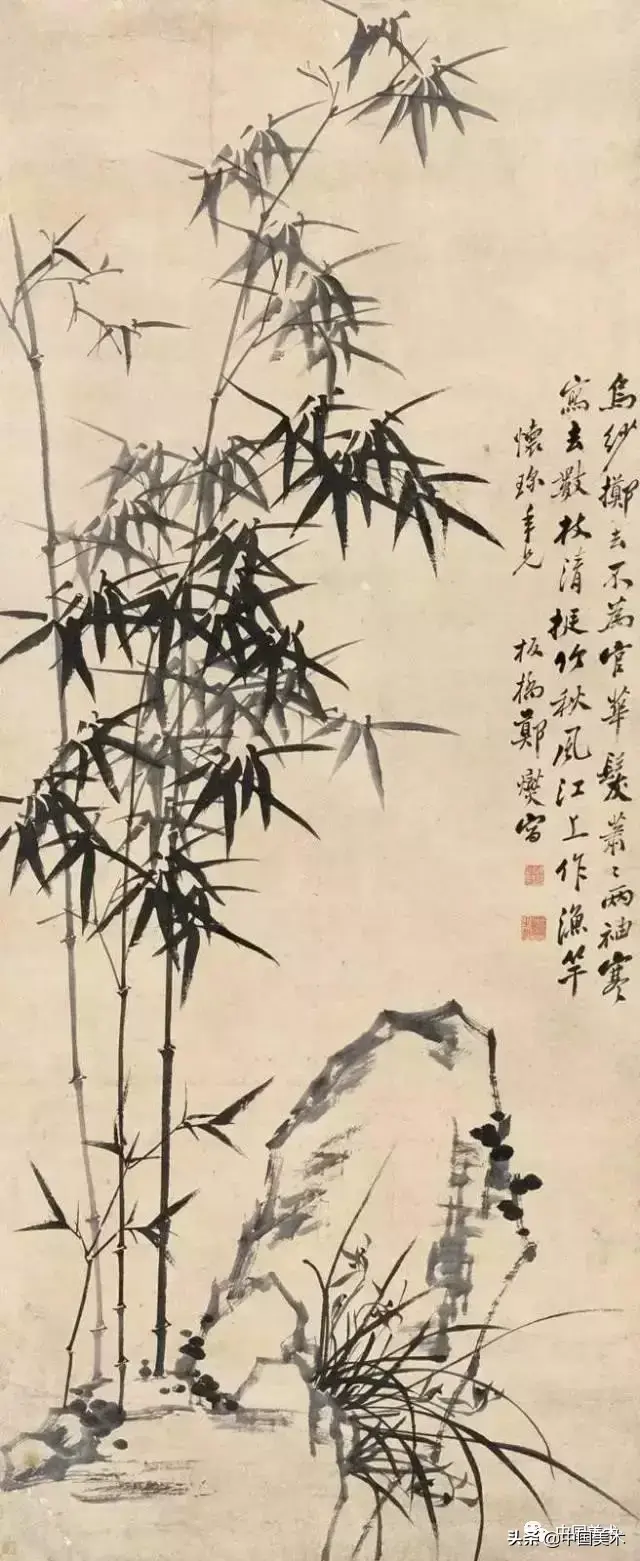 烏紗擲去不為官華髮蕭〻兩袖寒
寫去數枝清挺竹秋風江上作漁竿
懷珎年兄
板橋鄭燮寫
中国美术
头条@中国美术